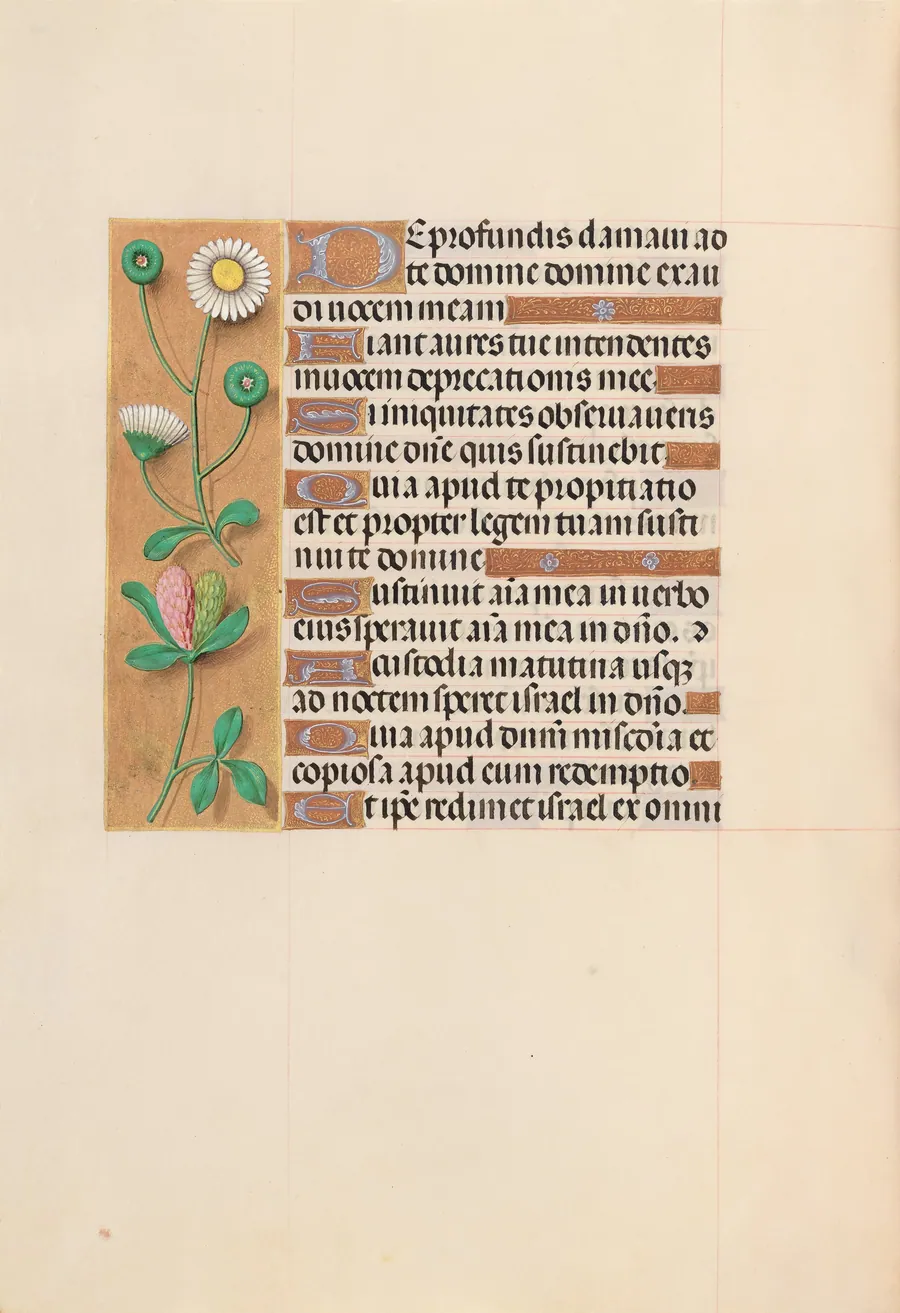 DE profundis clamaui ad
te domine domine exau
di uocem meam
Fiant aures tue intendentes
in uocem deprecationis mee
Si iniquitates obseruaueris
domine dn̄e quis sustinebit
Quia apud te propitiatio
est et propter legem tuam susti
nui te domine
Sustinuit aīa mea in uerbo
eius sperauit aīa mea in dn̄o. d
A custodia matutina usqꝫ
ad noctem speret israel in dn̄o.
Quia apud dnm̄ miscd̄ia et
copiosa apud eum redemptio
Et ip̄e redimet israel ex omni